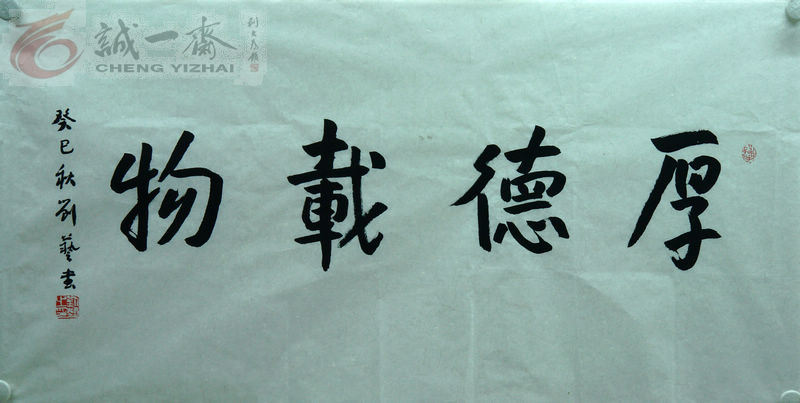 誠一齋
CHENG YIZHAI
厚德載物
癸巳秋劉藝書